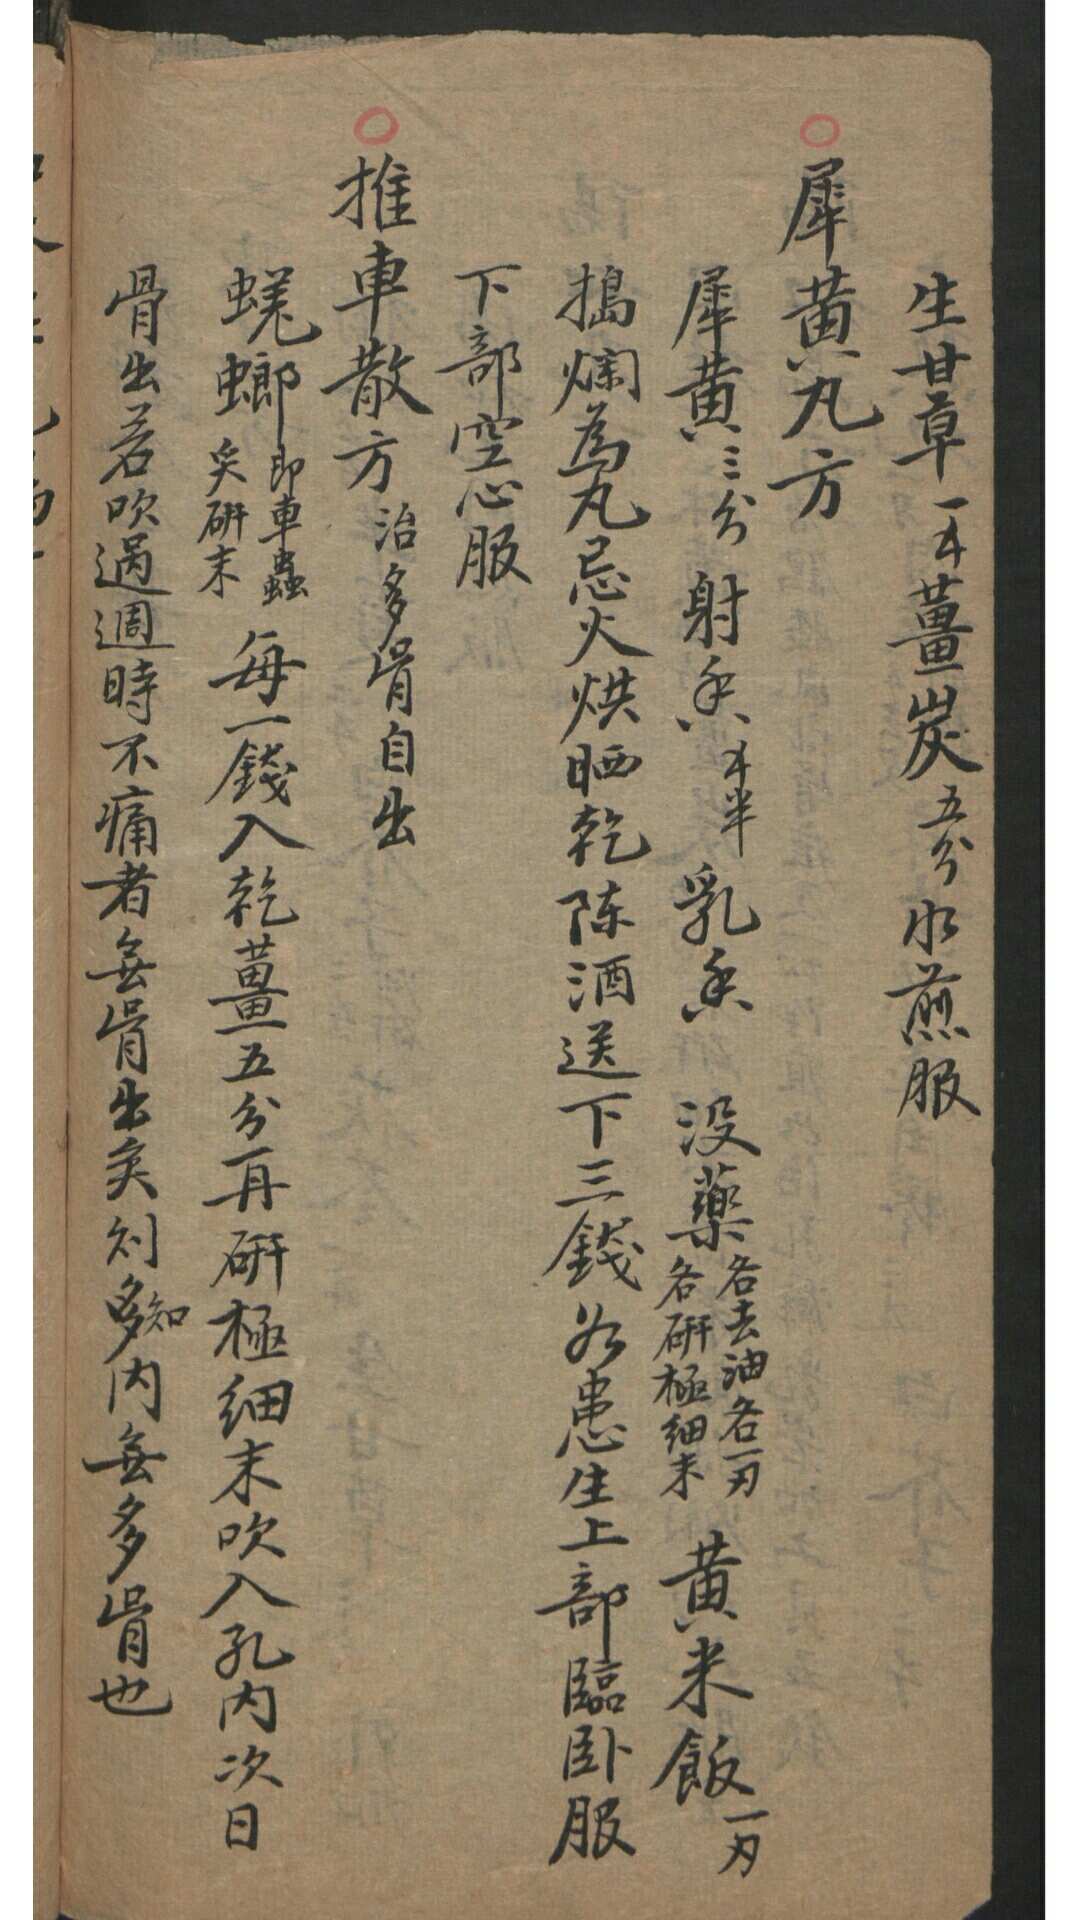 生甘草一𠦑薑炭五分水煎服
犀黄丸方
犀黄三分 射香𠦑半 乳香 没藥各去油各一刃各研極細末 黄米飯一刃
搗爛為丸忌火烘晒乾陈酒送下三錢若患生上部臨卧服
下部空心服
推車散方治多骨自出
蜣螂即車蟲炙研末每一錢入乾薑五分再研極細末吹入孔内次日
骨出若吹過週時不痛者無骨出矣則知内無多骨也